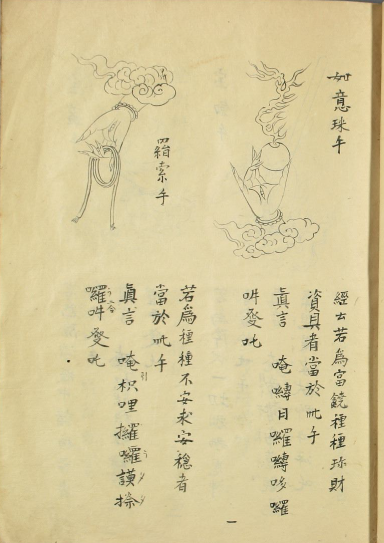 如意珠手
經云若為富饒種種珎財
資具者當於此手
真言 唵嚩日囉嚩哆囉
吽癹吒
羂索手
若為種種不安求安穏者
當於此手
真言 唵枳哩攞囉謨捺
囉吽癹吒
一